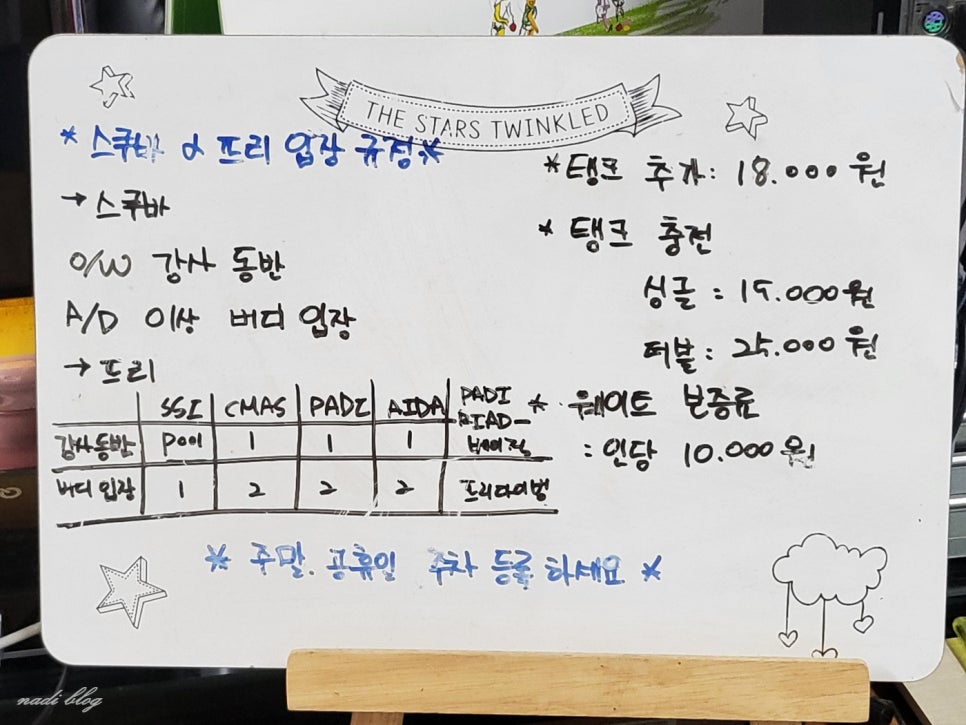 THE STARS TWINKLED
* 스쿠바 & 프리 입장 규정 *
→ 스쿠바
O/W 강사 동반
A/D 이상 버디 입장
→ 프리
SSI CMAS PADI AIDA PADI
강사동반 pool 1 1 1 베이직
버디 입장 1 2 2 2 프리다이빙
* 탱크 추가: 18.000 원
* 탱크 충전
싱글 : 19.000원
더블 : 25.000 원
* 웨이트 보증료
: 인당 10.000 원
* 주말. 공휴일 주차 등록 하세요 *
nadi blog